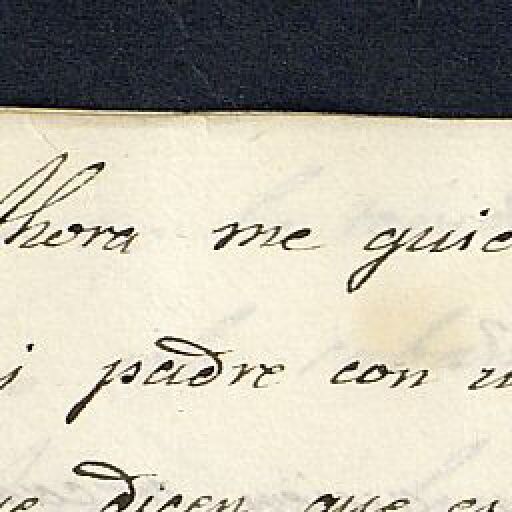 Ahora me quie
i padre con u
ue dicen que es